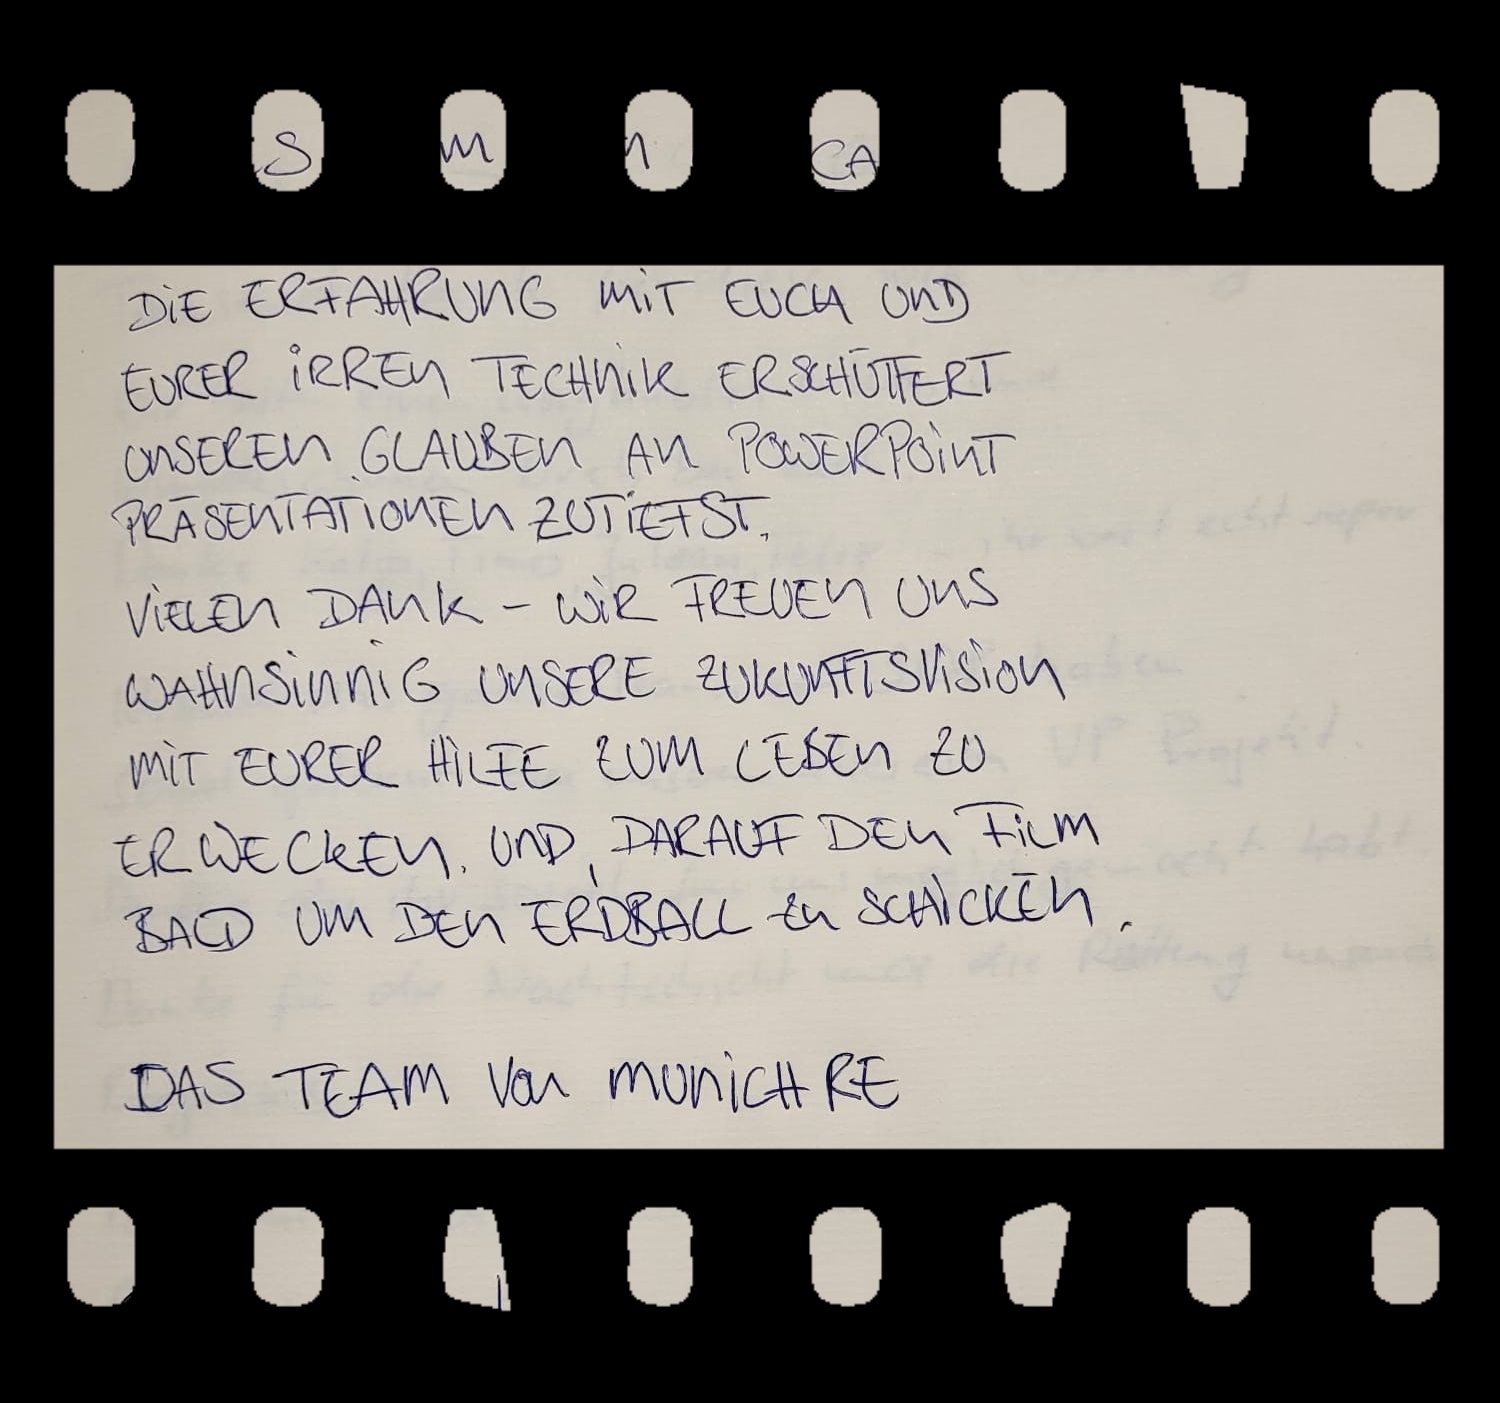 S M n CA
DIE ERFAHRUNG MIT EUCH UND
EURER IRREN TECHNIK ERSCHÜTTERT
UNSEREN GLAUBEN AN POWERPOINT
PRÄSENTATIONEN ZUTIEFST.
VIELEN DANK – WIR FREUEN UNS
WAHNSINNIG UNSERE ZUKUNFTSVISION
MIT EURER HILFE ZUM LEBEN ZU
ERWECKEN. UND, DARAUF DEN FILM
BALD UM DEN ERDBALL zu SCHICKEN.
DAS TEAM von MUNICH RE